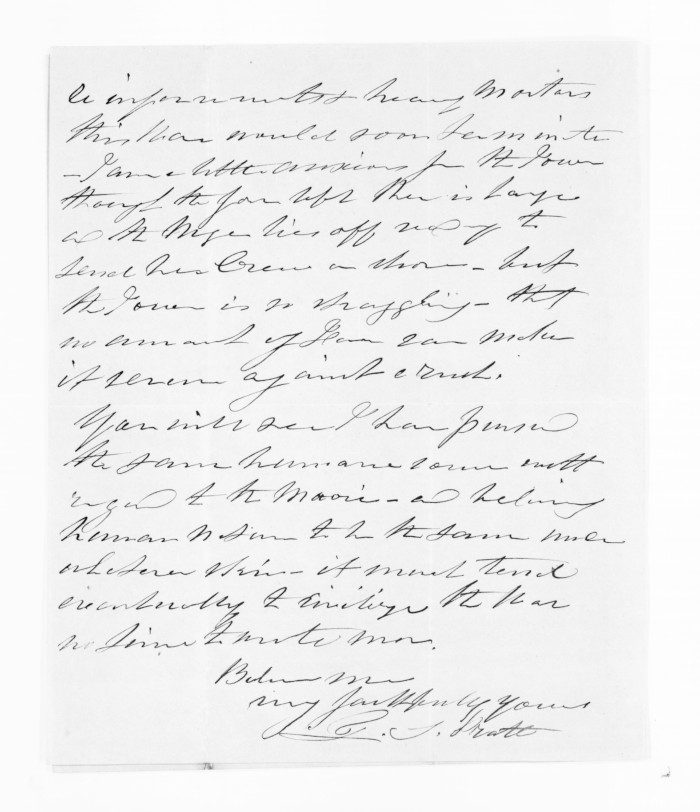 Reinforcements & heavy Mortars
this War would soon terminate
- I am a little anxious for the Town
though the force left there is large
and the Niger lies off ready to
send her Crew on shore - but
the Town is so straggling - that
no amount of Force can make
it secure against a rush.
You will see I have pursued
the same humane course with
regard to the Maorie - and believing
human nature to be the same under
whatever skin - it must tend
eventually to civilize the War
no time to write more.
Believe me
very faithfully yours
T. S. Pratt